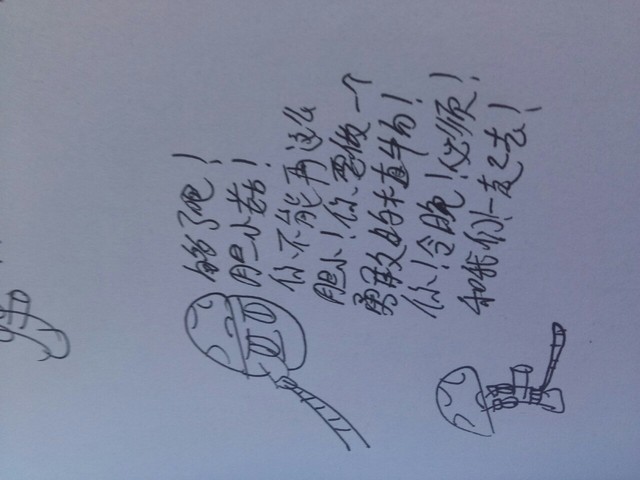 够了吧！
胆小菇！
你不能再这么
胆小！你要做一个
勇敢的植物！
你！今晚！必须！
和我们一起去！